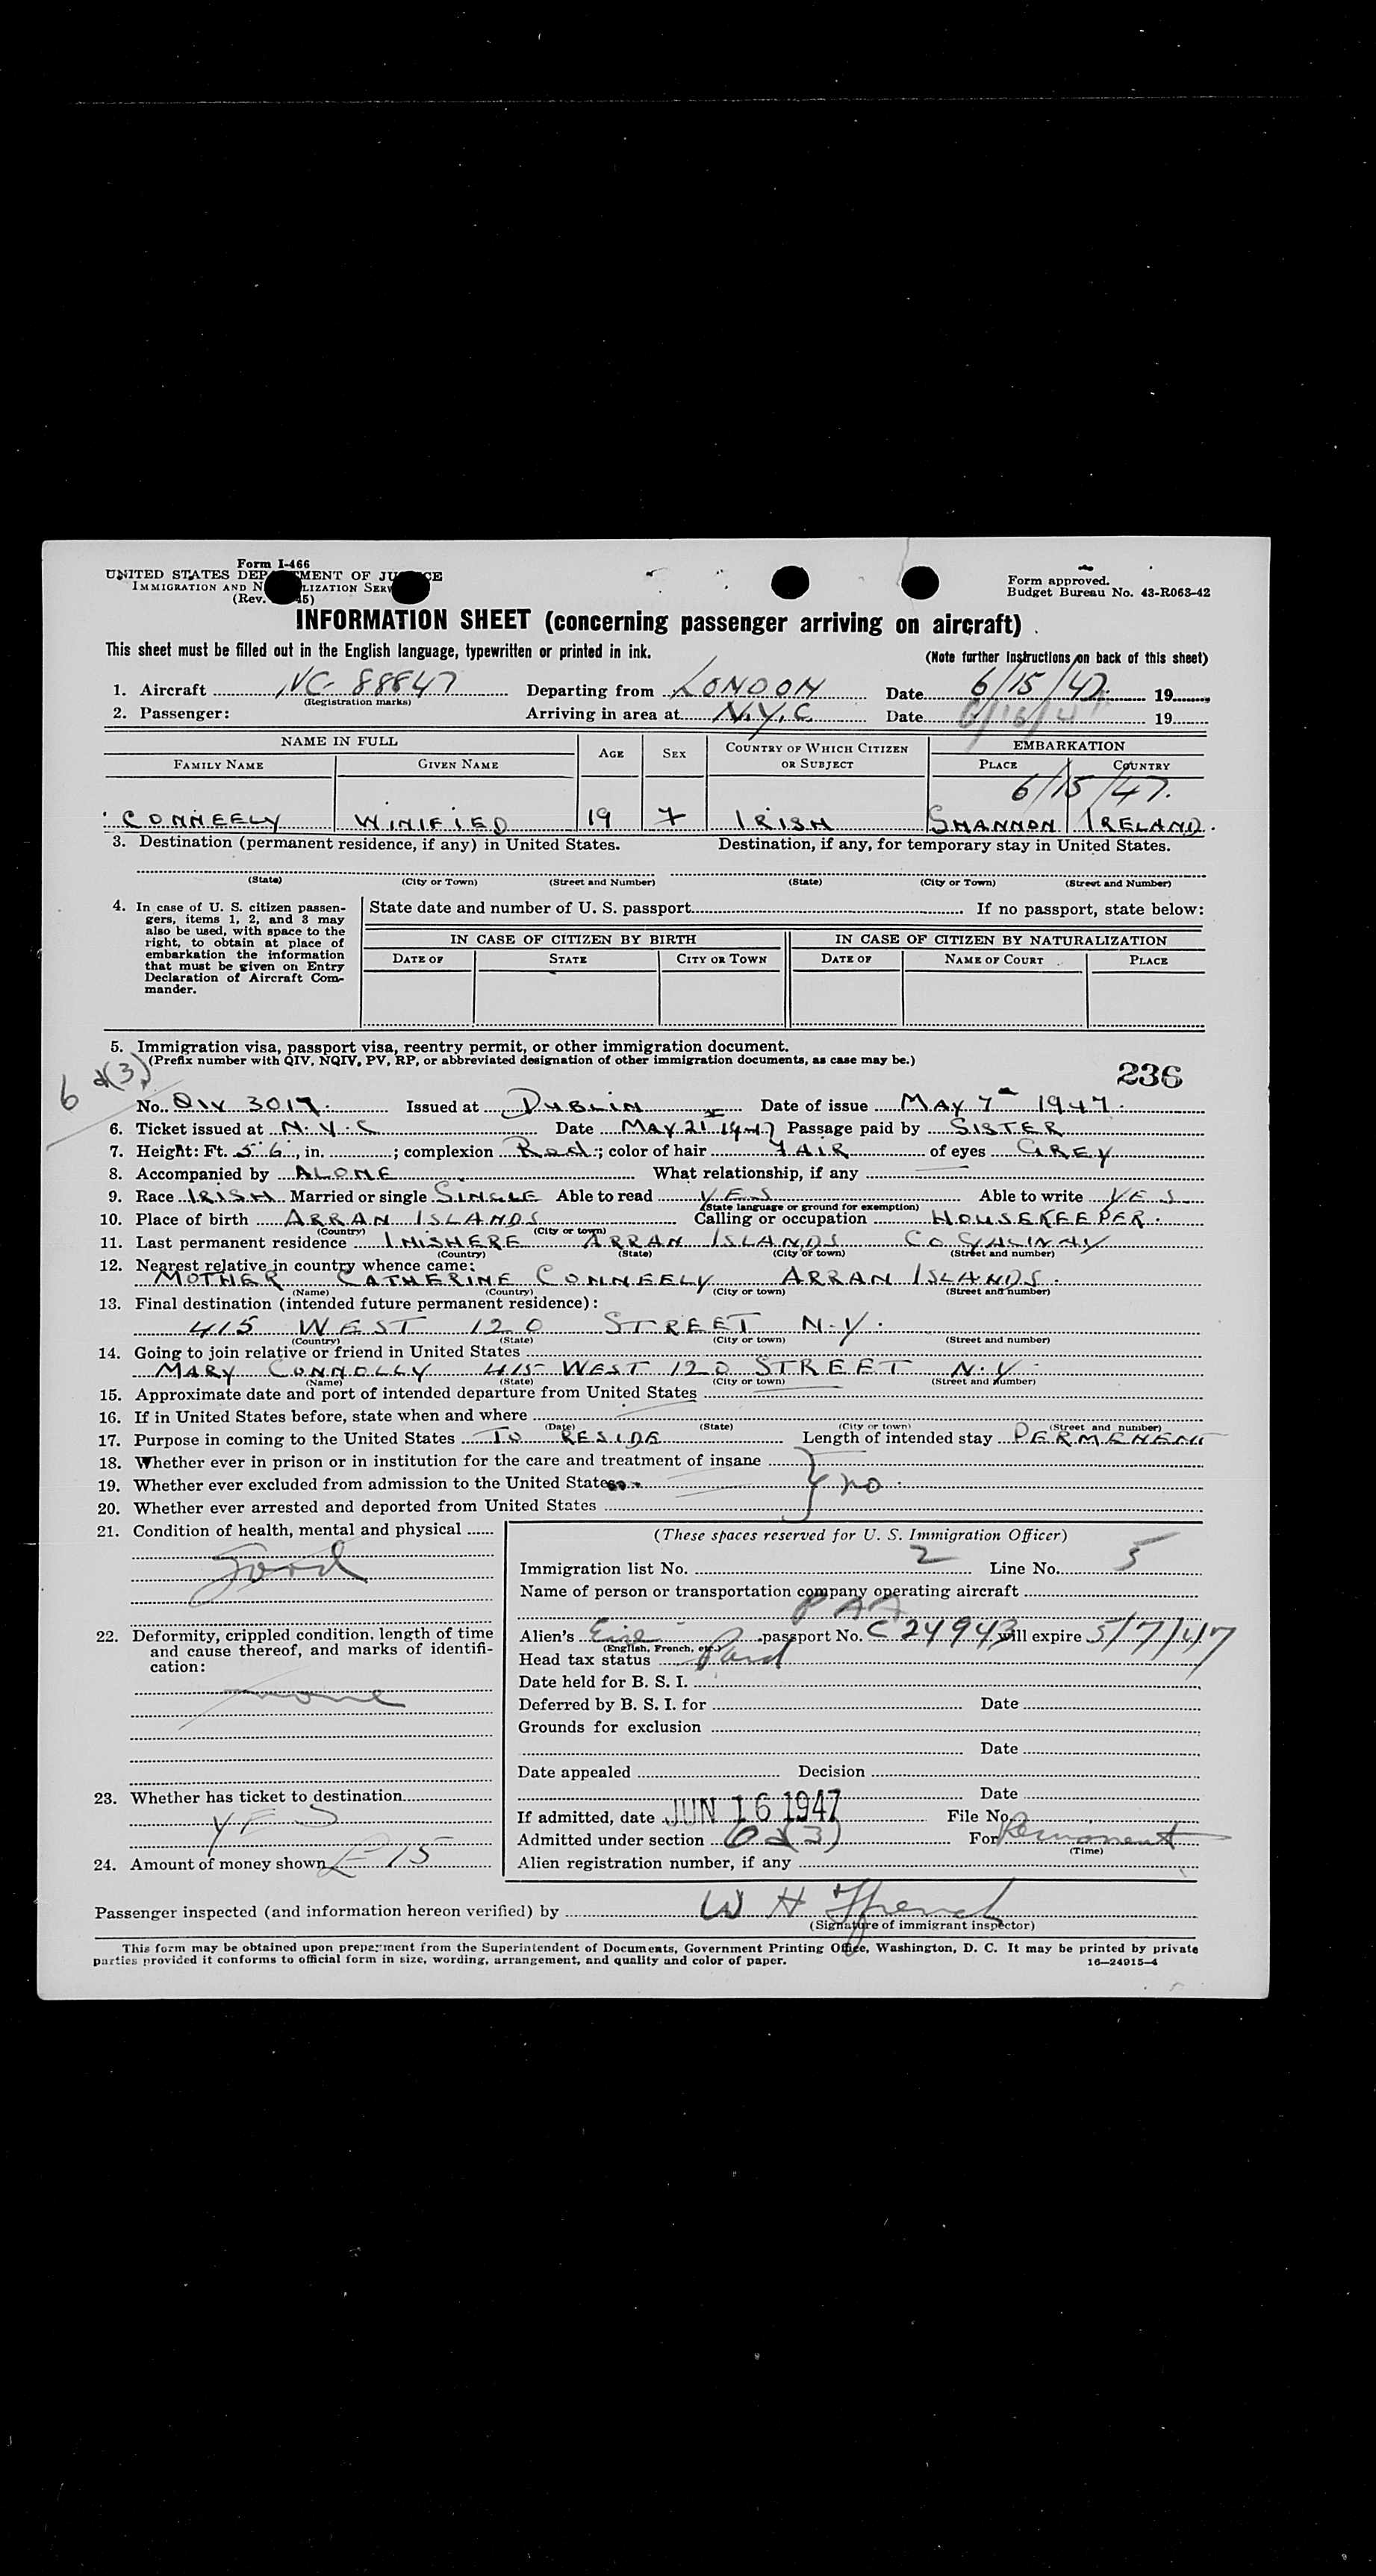 Form I-466
UNITED STATES DEP MENT OF JU CE
IMMIGRATION AND N LIZATION SERV
(Rev. 5)
Form approved.
Budget Bureau No. 43-R063-42
INFORMATION SHEET (concerning passenger arriving on aircraft)
This sheet must be filled out in the English language, typewritten or printed in ink.
(Note further instructions on back of this sheet)
1. Aircraft NC-88847 Departing from LONDON Date 6/15/47 19
(Registration marks)
2. Passenger: Arriving in area at N.Y.C Date 6/16/47 19
NAME IN FULL AGE SEX COUNTRY OF WHICH CITIZEN OR SUBJECT EMBARKATION
FAMILY NAME GIVEN NAME PLACE COUNTRY
6/15/47.
CONNEELY WINIFIED 19 F IRISH SHANNON IRELAND.
3. Destination (permanent residence, if any) in United States. Destination, if any, for temporary stay in United States.
(State) (City or Town) (Street and Number) (State) (City or Town) (Street and Number)
4. In case of U. S. citizen passen-
gers, items 1, 2, and 3 may
also be used, with space to the
right, to obtain at place of
embarkation the information
that must be given on Entry
Declaration of Aircraft Com-
mander.
State date and number of U. S. passport If no passport, state below:
IN CASE OF CITIZEN BY BIRTH IN CASE OF CITIZEN BY NATURALIZATION
DATE OF STATE CITY OR TOWN DATE OF NAME OF COURT PLACE
5. Immigration visa, passport visa, reentry permit, or other immigration document.
(Prefix number with QIV, NQIV, PV, RP, or abbreviated designation of other immigration documents, as case may be.)
236
6 d(3)
No. QIV 3017. Issued at DUBLIN Date of issue MAY 7th 1947.
6. Ticket issued at N.Y.C Date MAY 21 1947 Passage paid by SISTER
7. Height: Ft. 5'6", in. ; complexion Red ; color of hair FAIR of eyes GREY
8. Accompanied by ALONE What relationship, if any
9. Race IRISH Married or single SINGLE Able to read YES Able to write YES
(State language or ground for exemption)
10. Place of birth ARRAN ISLANDS Calling or occupation HOUSEKEEPER.
(Country) (City or town)
11. Last permanent residence INISHERE ARRAN ISLANDS CO GALWAY
(Country) (State) (City or town) (Street and number)
12. Nearest relative in country whence came:
MOTHER CATHERINE CONNEELY ARRAN ISLANDS.
(Name) (Country) (City or town) (Street and number)
13. Final destination (intended future permanent residence):
415 WEST 120 STREET N.Y.
(Country) (State) (City or town) (Street and number)
14. Going to join relative or friend in United States
MARY CONNOLLY 415 WEST 120 STREET N.Y.
(Name) (State) (City or town) (Street and number)
15. Approximate date and port of intended departure from United States
16. If in United States before, state when and where
(Date) (State) (City or town) (Street and number)
17. Purpose in coming to the United States TO RESIDE Length of intended stay PERMENENT
18. Whether ever in prison or in institution for the care and treatment of insane
19. Whether ever excluded from admission to the United States no.
20. Whether ever arrested and deported from United States
21. Condition of health, mental and physical
Good
22. Deformity, crippled condition, length of time
and cause thereof, and marks of identifi-
cation:
none
23. Whether has ticket to destination
YES
24. Amount of money shown £ 15
(These spaces reserved for U. S. Immigration Officer)
Immigration list No. 2 Line No. 5
Name of person or transportation company operating aircraft
PAA
Alien's Eire passport No. C 24943 will expire 5/7/47
(English, French, etc.)
Head tax status Paid
Date held for B. S. I.
Deferred by B. S. I. for Date
Grounds for exclusion
Date
Date appealed Decision
Date
If admitted, date JUN 16 1947 File No.
Admitted under section 6 d(3) For Permanent
(Time)
Alien registration number, if any
Passenger inspected (and information hereon verified) by W H Ffrench
(Signature of immigrant inspector)
This form may be obtained upon prepayment from the Superintendent of Documents, Government Printing Office, Washington, D. C. It may be printed by private
parties provided it conforms to official form in size, wording, arrangement, and quality and color of paper. 16—24915-4